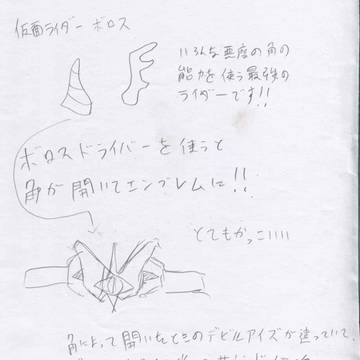 仮面ライダー ボロス
いろんな悪魔の角の
能力を使う最強の
ライダーです!!
ボロスドライバーを使うと
角が開いてエンブレムに!!
とてもかっこいい
角によって開いたときのデビルアイズが違っていて、